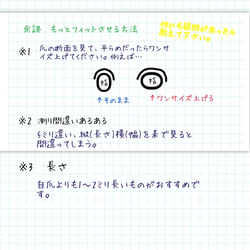 余談 もっとフィットさせる方法
何かも疑問があったら
教えて下さい。
※1 爪の断面を見て、平らめだったらワンサ
イズ上げてください。例えば…
幅 幅
↑そのまま ↑ワンサイズ上げる
※2 測り間違いあるある
5ミリ違い、縦(長さ)横(幅)を表で見ると
間違ってしまう。
※3 長さ
自爪よりも1〜2ミリ長いものがおすすめで
す。